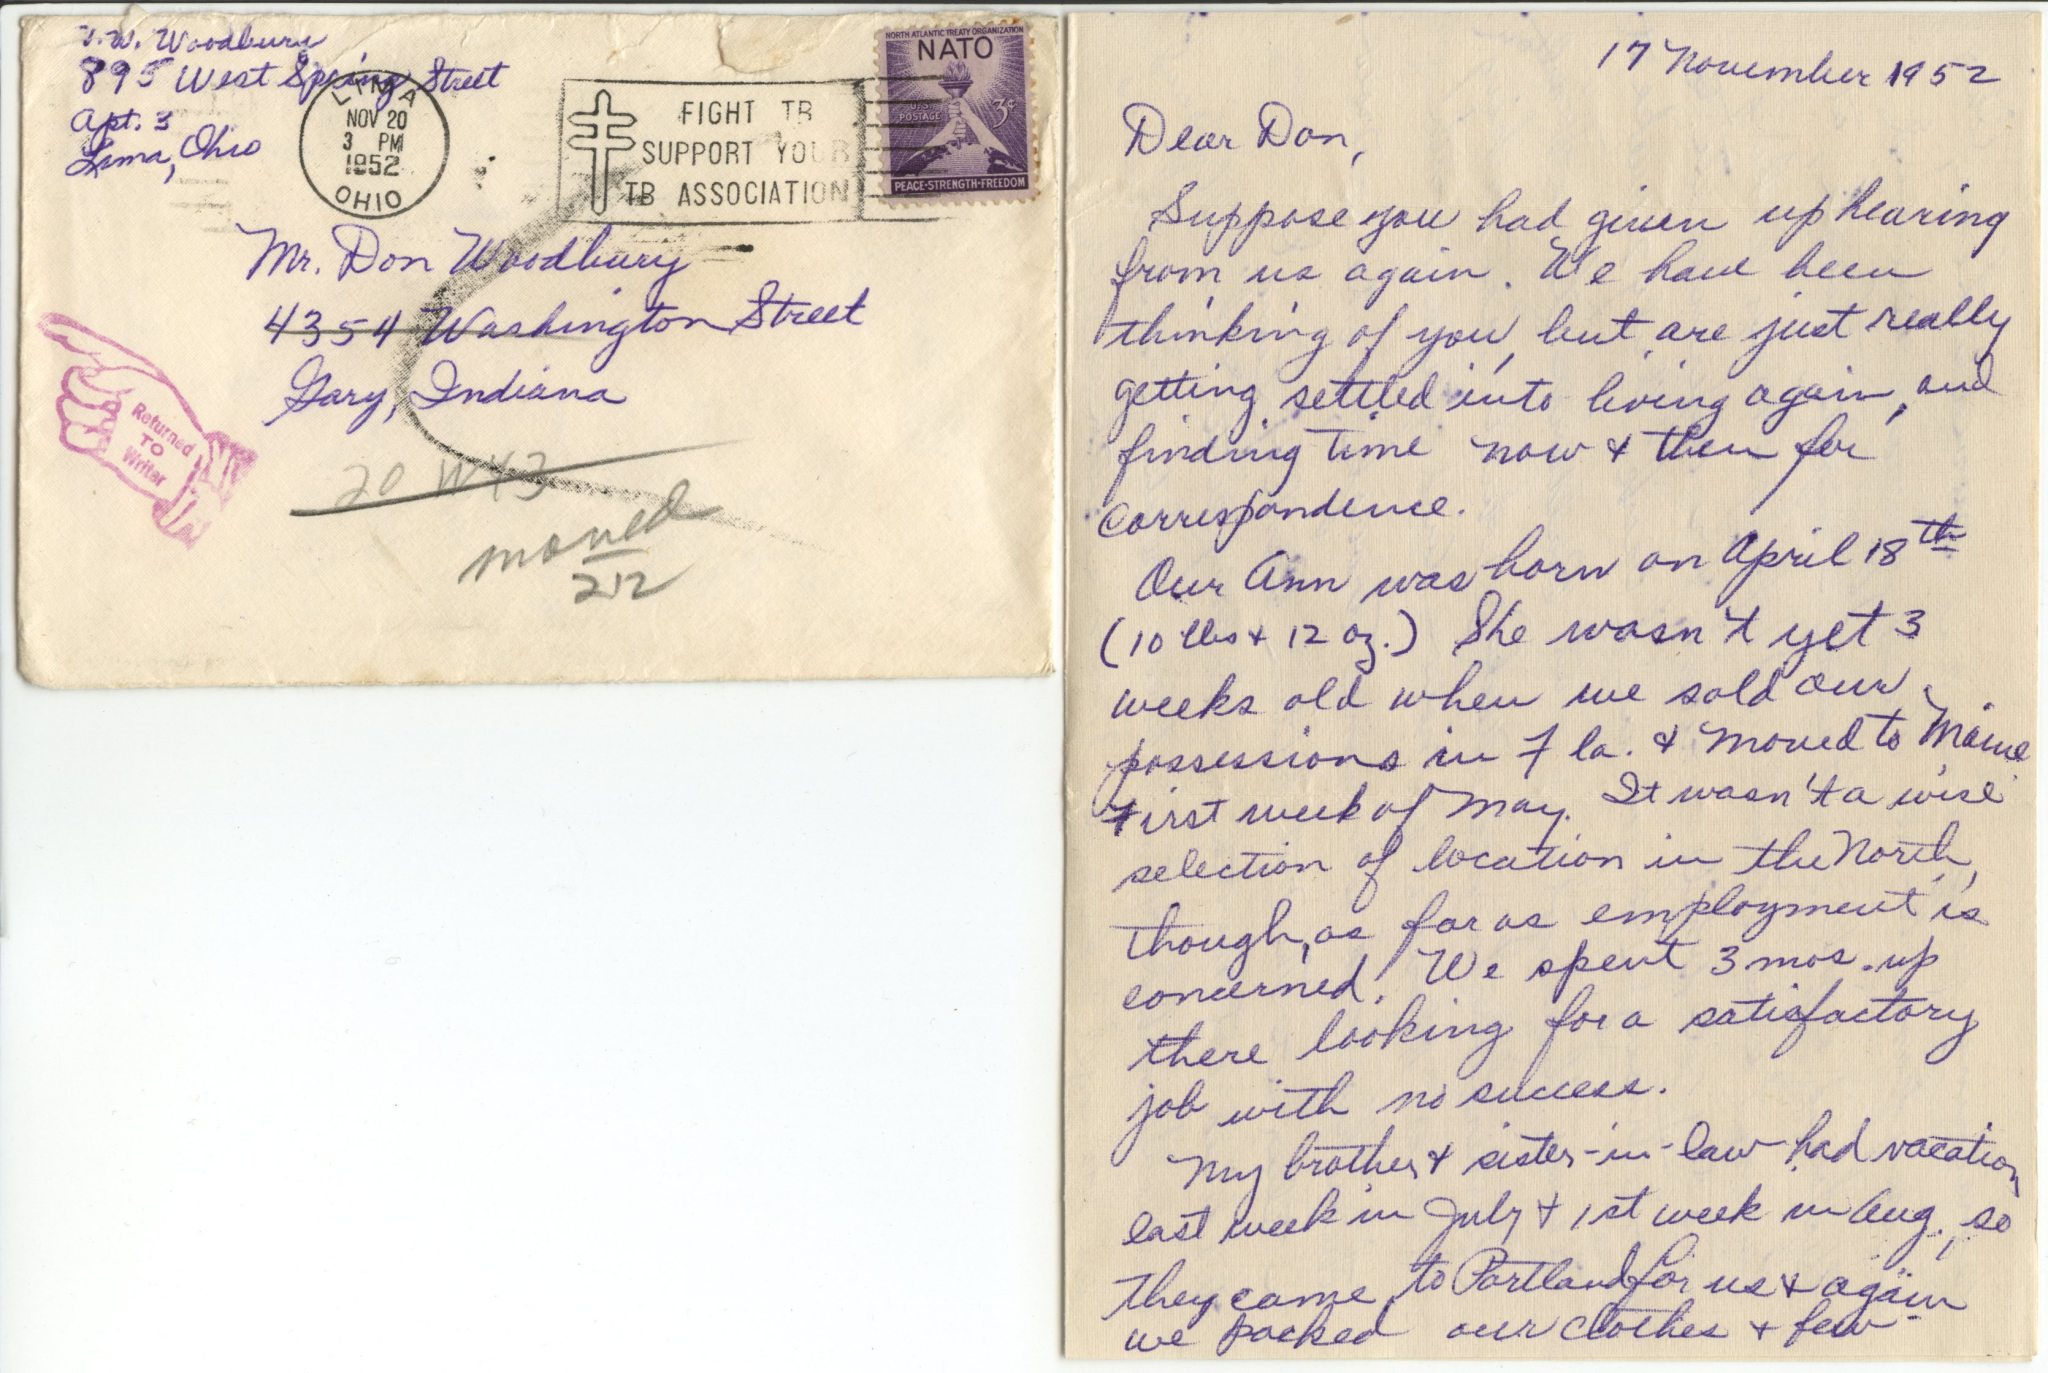 V. W. Woodbury
895 West Spring Street
Apt. 3
Lima, Ohio
LIMA
NOV 20
3 PM
1952
OHIO
FIGHT TB
SUPPORT YOUR
TB ASSOCIATION
NORTH ATLANTIC TREATY ORGANIZATION
NATO
U.S.
POSTAGE
3¢
PEACE-STRENGTH-FREEDOM
Mr. Don Woodbury
4354 Washington Street
Gary, Indiana
Returned
TO
Writer
20 W 43
moved
212
17 November 1952
Dear Don,
Suppose you had given up hearing
from us again. We have been
thinking of you, but are just really
getting settled into living again, and
finding time now & then for
correspondence.
Our Ann was born on April 18th
(10 lbs & 12 oz.) She wasn't yet 3
weeks old when we sold our
possessions in Fla. & moved to Maine
first week of May. It wasn't a wise
selection of location in the North,
though, as far as employment is
concerned. We spent 3 mos. up
there looking for a satisfactory
job with no success.
My brother & sister-in-law had vacation
last week in July & 1st week in Aug., so
they came to Portland for us & again
we packed our clothes & few